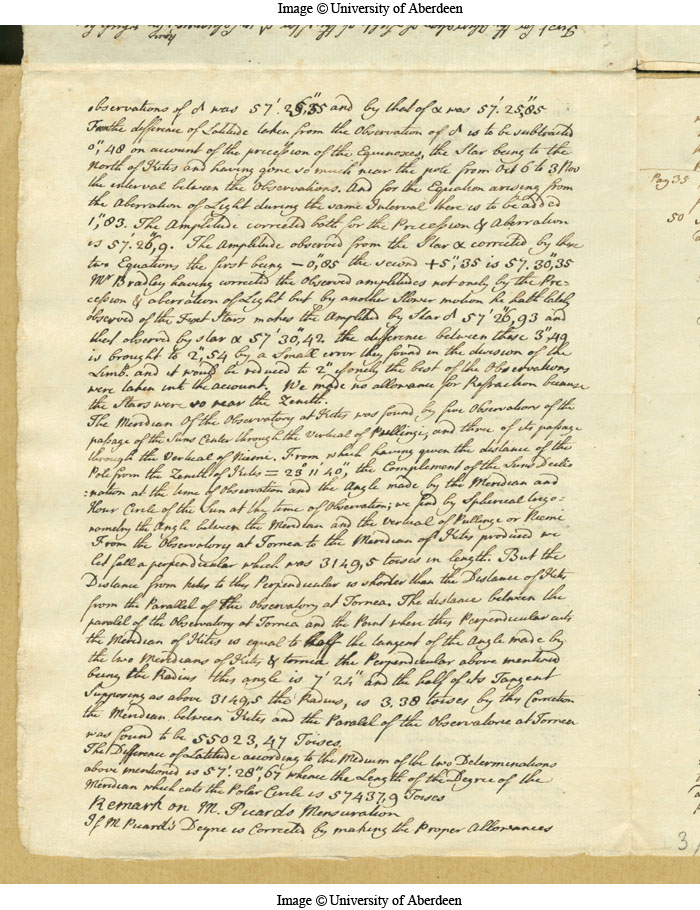 Image © University of Aberdeen
observations of δ was 57'. 25",55 and by that of α was 57'. 25",85
From the difference of Latitude taken from the Observation of δ is to be subtracted
0",48 on account of the precession of the Equinoxes, the Star being to the
North of Kites and having gone so much near the pole from Oct 6 to 3 Nov
the interval between the Observations. And for the Equation arising from
the Aberration of Light during the same Interval there is to be added
1",83. The Amplitude corrected both for the Precession & Aberration
is 57'. 26",9. The Amplitude observed from the Star α corrected by these
two Equations the first being – 0",85 the second + 5",35 is 57'. 30",35
Mr Bradley having corrected the Observed amplitudes not onely by the Pre-
cession & aberration of Light but by another Slower motion he hath lately
observed of the Fixt Stars makes the Amplitud by Star δ 57' 26",93 and
that observd by star α 57' 30",42. the difference between these 3",49
is brought to 2",54 by a Small error they found in the division of the
Limb. and it would be reduced to 2" if onely the best of the Observations
were taken into the account. We made no allowance for Refraction because
the Stars were so near the Zenith.
The Meridian Of the Observatory at Kites was found, by five Observations of the
passage of the Suns Center through the Vertical of Pullingi, and three of its passage
through the Vertical of Niemi. From which having given the distance of the
Pole from the Zenith of Kites = 23° 11' 40", the Complement of the Suns Decli
:nation at the time of Observation and the Angle made by the Meridian and
Hour Circle of the Sun at the time of Observation; we find by Spherical trigo-
nometry the Angle between the Meridian and the vertical of Pullinge or Niemi
From the Observatory at Tornea to the Meridian of Kites produced we
let fall a perpendicular which was 3149,5 toises in length. But the
Distance from Kites to this Perpendicular is shorter than the Distance of Kites
from the Parallel of the Observatory at Tornea. The distance between the
paralel of the Observatory at Tornea and the Point where this Perpendicular cuts
the Meridian of Kites is equal to half the tangent of the Angle made by
the two Meridians of Kites & tornea the Perpendicular above mentioned
being the Radius this angle is 7' 24" and the half of its Tangent
Supposing as above 3149,5 the Radius, is 3,38 toises by this Correction
the Meridian between Kites and the Paralel of the Observatorie at Tornea
was found to be 55023,47 Toises.
The Difference of Latitude according to the Medium of the two Determinations
above mentioned is 57'. 28",67 whence the Length of the Degree of the
Meridian which cuts the Polar Circle is 57437,9 Toises
Remark on M. Picards Mensuration
If M Picard's Degree is Corrected by making the Proper Allowances
Pag 35
50
3
Image © University of Aberdeen